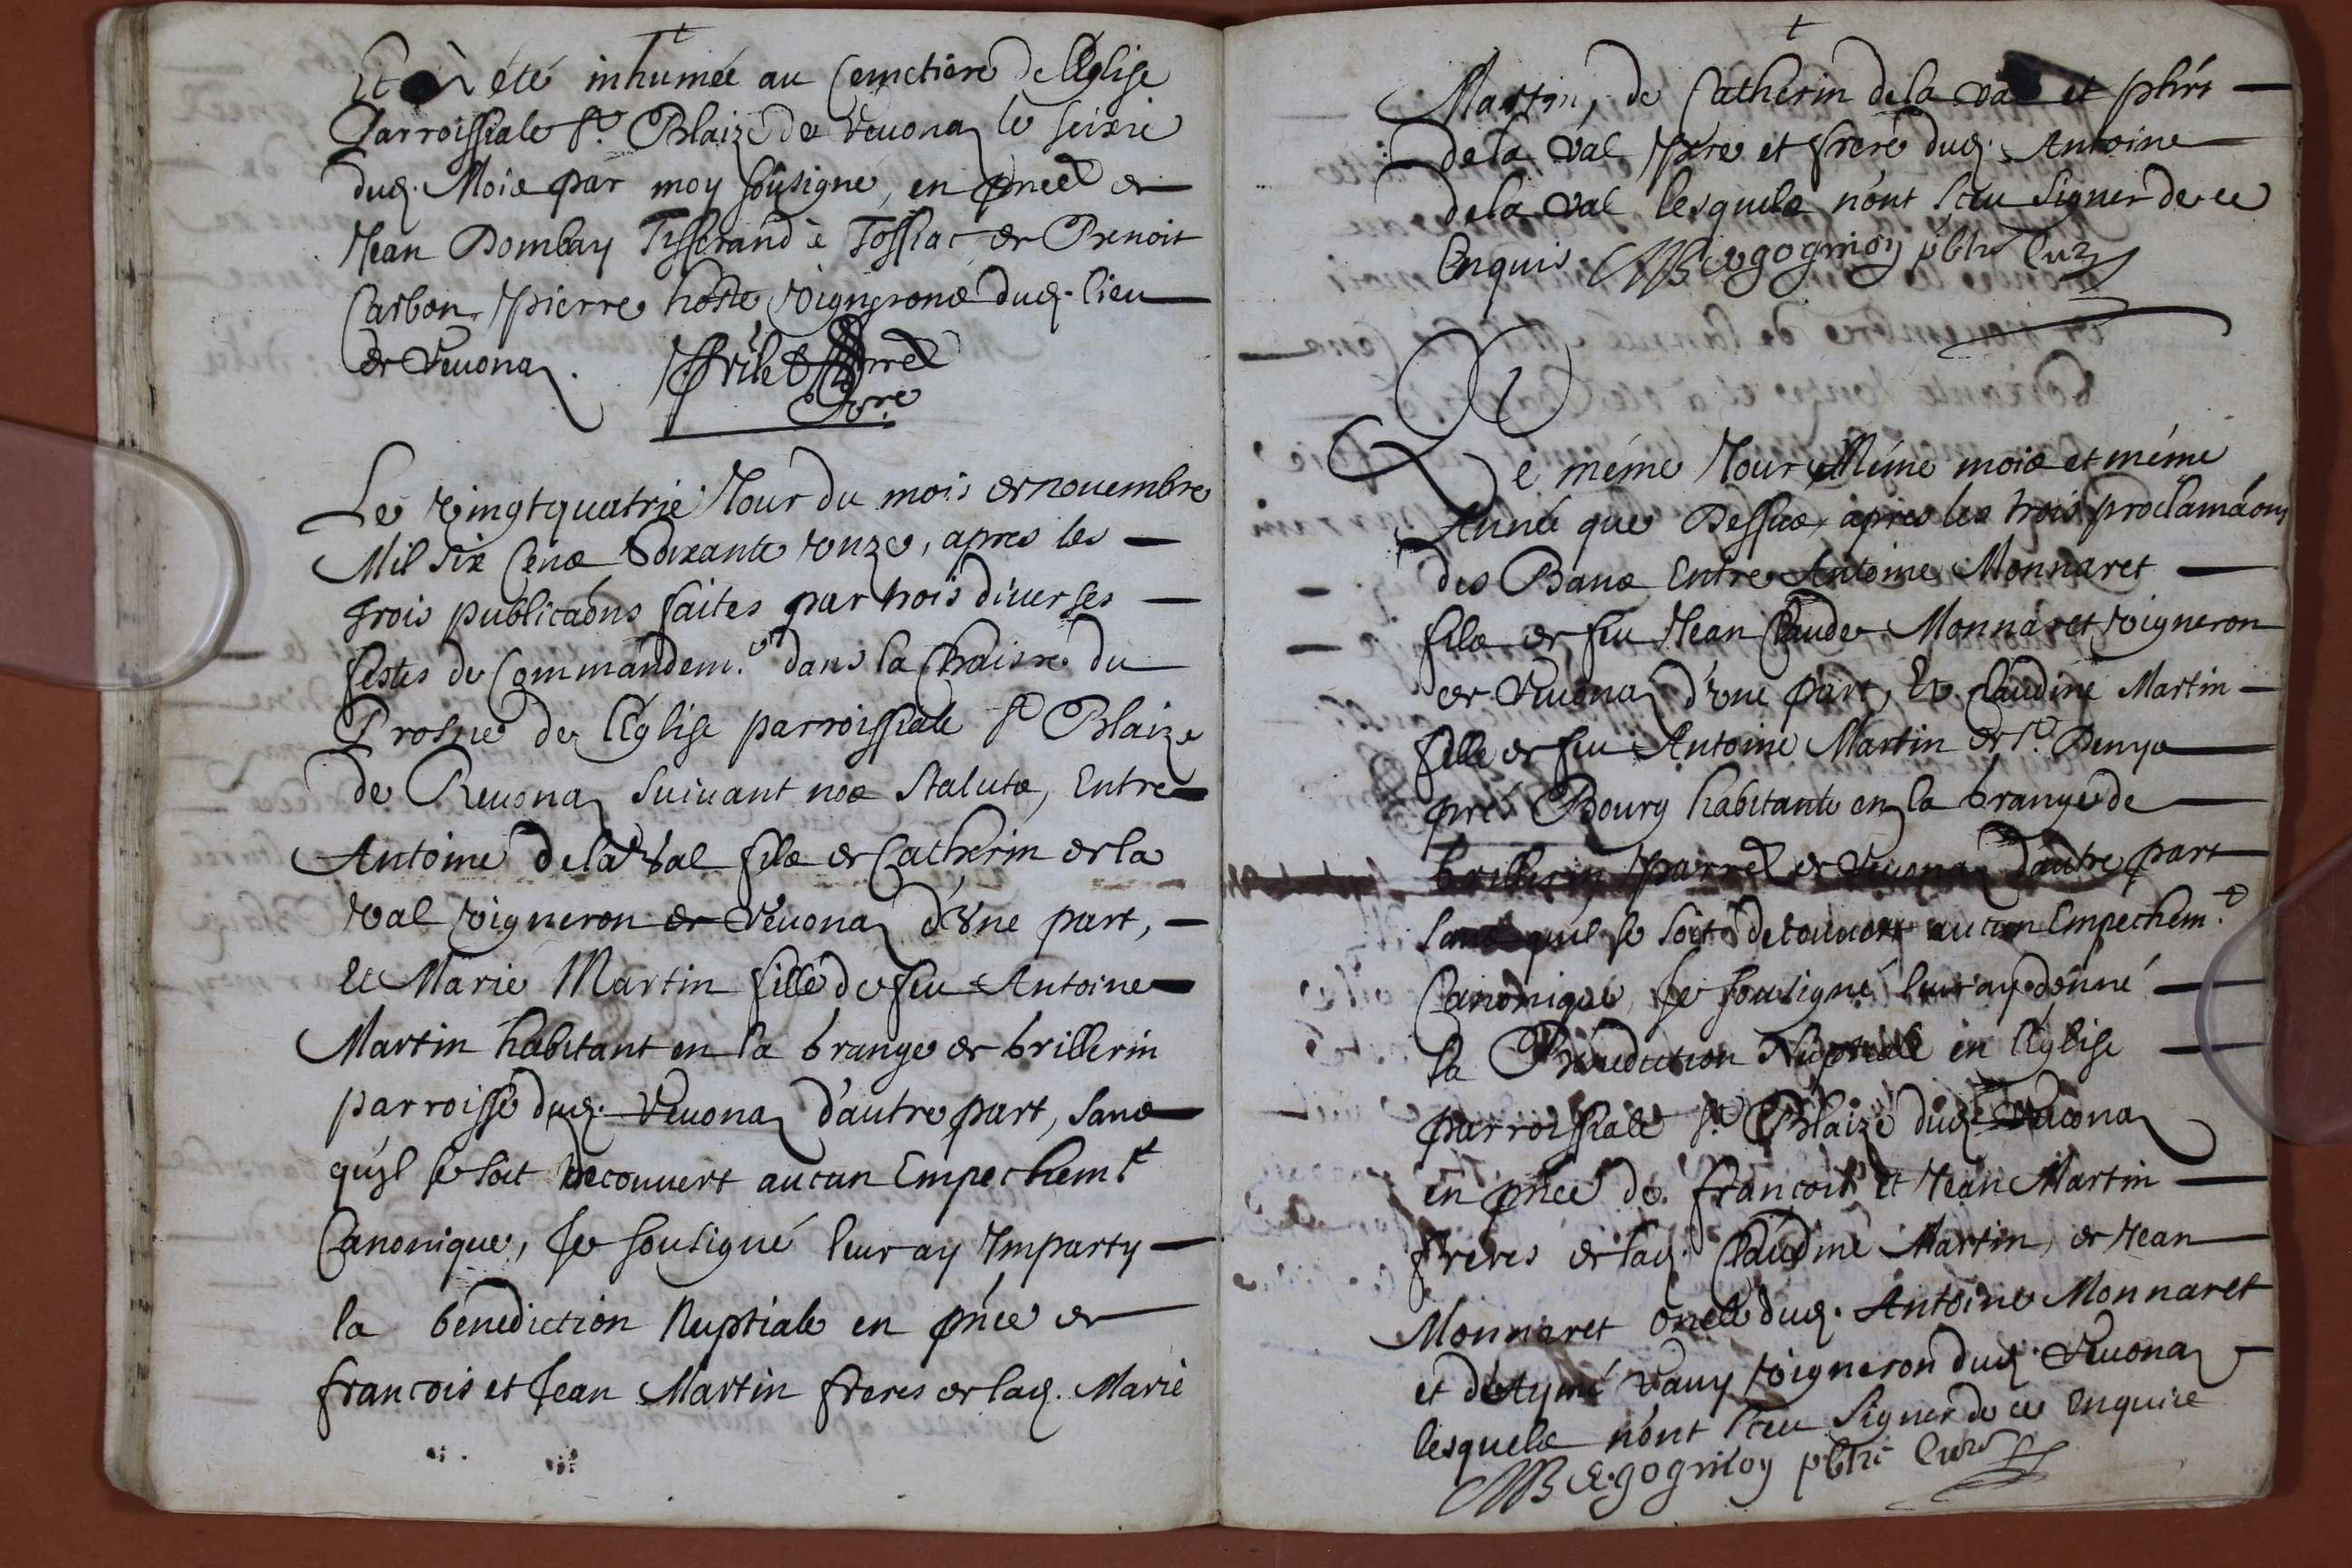 Et a été inhumée au Cemetiere de l'Eglise
Parroissiale St. Blaize de Reuona le seizie
dud. Mois par moy sousigné, en pnce de
Jean Dombay Tisserand à Tossiac et Benoit
Carbon, pierre hoste vignerons dud. lieu
de Reuona.
Le vingtquatrie Jour du mois de nouembre
Mil six Cens Soixante onze, apres les
trois publicaons faites par trois diuerses
festes de Commandemt. dans la Chaise du
Prosne de l'Eglise parroissiale St Blaize
de Reuona suiuant nos Statuts, Entre
Antoine de la Val fils de Catherin de la
Val vigneron de Reuona d'Vne part,
Et Marie Martin fille de feu Antoine
Martin habitant en la Grange de brillerin
parroisse dud. Reuona d'autre part, sans
quil se soit decouuert aucun Empechemt
Canonique, Je sousigné leur ay Imparty
la benediction Nuptiale en pnce de
francois et Jean Martin freres de lad. Marie
Martin, de Catherin de la Val et phi
de la Val pere et frere dud. Antoine
de la Val lesquels n'ont sceu signer de ce
Enquis Gognioy pbtre Curé
Le méme Jour Méme mois et méme
Année que Dessus, apres les trois proclamaons
des Bans Entre Antoine Monnaret
fils de feu Jean Claude Monnaret vigneron
de Reuona d'vne part, Et Claudine Martin
fille de feu Antoine Martin de St. Denys
pré Bourg habitante en la Grange de
brillerin parre de Reuona d'autre part
sans quil se soit decouuert aucun Empechemt
Canonique, Je sousigné leur ay donné
la Benediction Nuptiale en l'Eglise
parroissiale St. Blaize dud. Reuona
en pnce de francois et Jean Martin
freres de lad. Claudine Martin, de Jean
Monnaret oncle dud. Antoine Monnaret
et d'Aymé vauy vigneron dud. Reuona
lesquels n'ont sceu signer de ce Enquis
Gognioy pbtre Curé